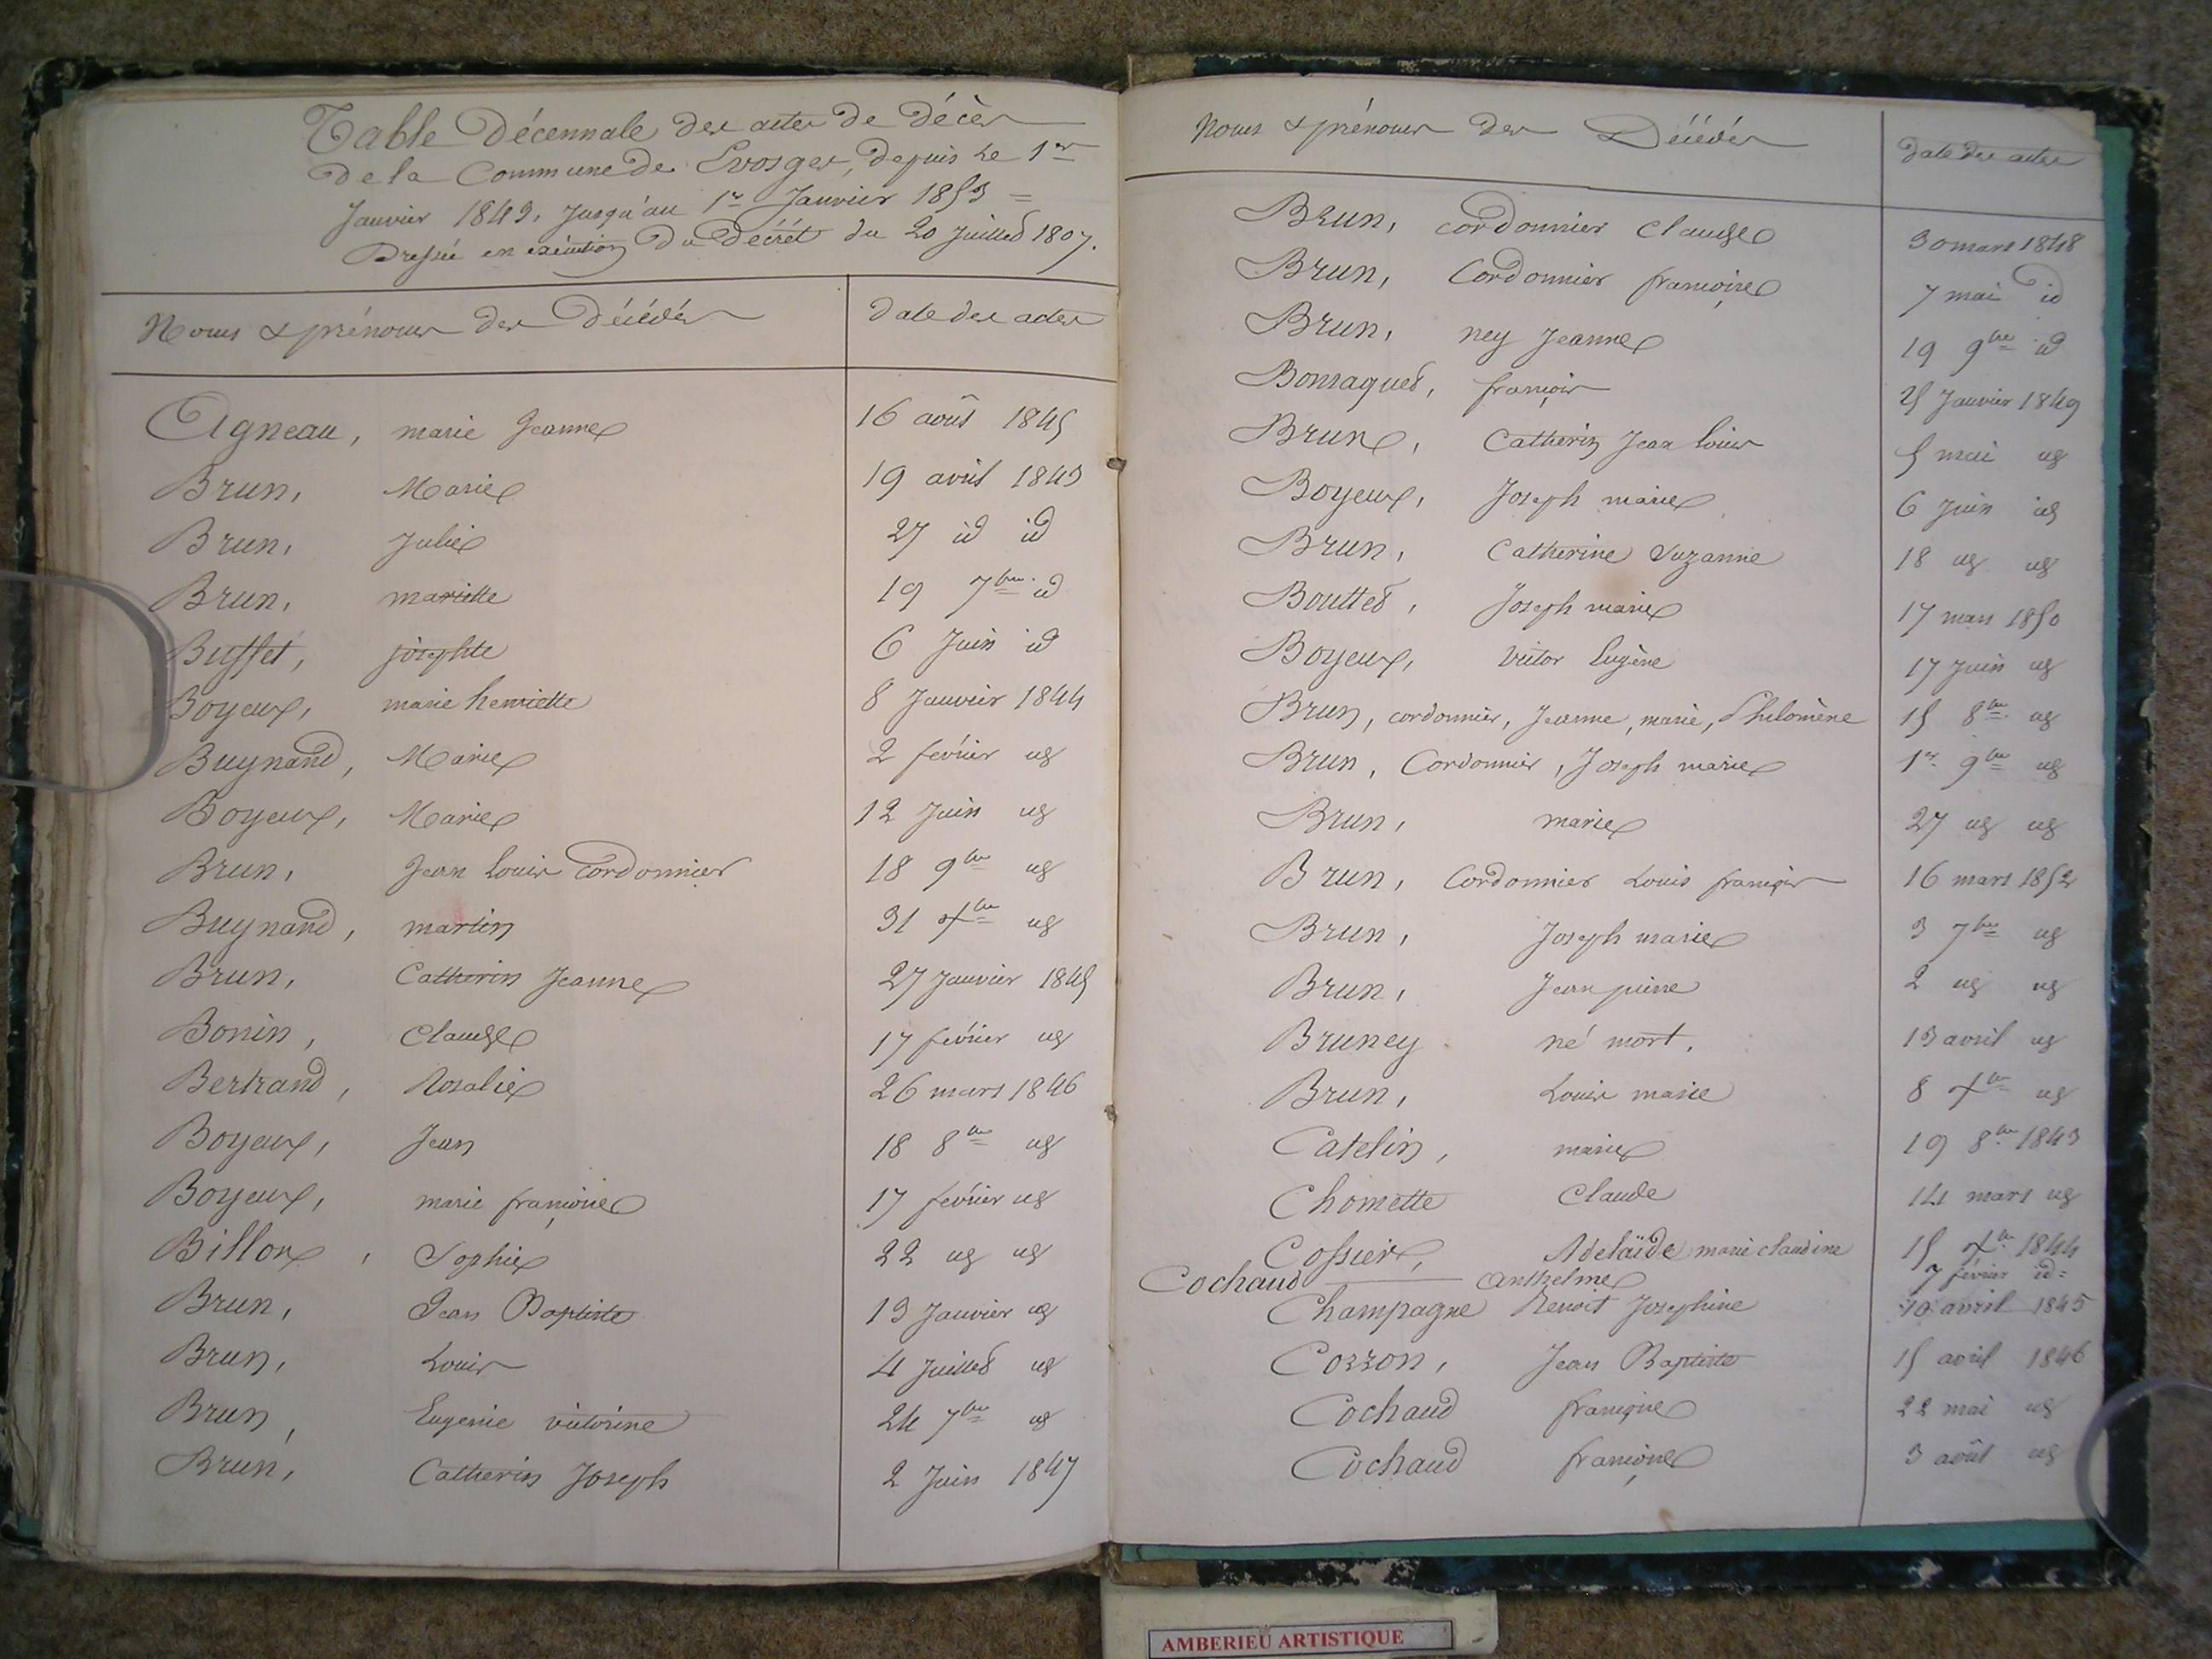 Table Décennale des actes de décès
de la Commune de Evosges, depuis le 1er
Janvier 1843, Jusqu'au 1er Janvier 1853 =
Dressée en exécution du Décrét du 20 Juillet 1807.
Noms & prénoms des Décédés Date des actes
Agneau, marie Jeanne 16 août 1845
Brun, Marie 19 avril 1843
Brun, Julie 27 id id
Brun, mariette 19 7bre id
Buffet, josephte 6 Juin id
Boyeux, marie henriette 8 Janvier 1844
Buynand, Marie 2 février id
Boyeux, Marie 12 Juin id
Brun, Jean Louis Cordonnier 18 9bre id
Buynand, martin 31 xbre id
Brun, Catherin Jeanne 27 Janvier 1845
Bonin, Claude 17 février id
Bertrand, Rosalie 26 mars 1846
Boyeux, Jean 18 8bre id
Boyeux, marie françoise 17 février id
Billon, Sophie 22 id id
Brun, Jean Baptiste 13 Janvier id
Brun, Louis 4 Juillet id
Brun, Eugenie victorine 24 7bre id
Brun, Catherin Joseph 2 Juin 1847
Noms & prénoms des Décédés Date des actes
Brun, cordonnier Claude 30 mars 1848
Brun, Cordonnier françoise 7 mai id
Brun, ney Jeanne 19 9bre id
Bonsaquet, françois 25 Janvier 1849
Brun, Catherin Jean Louis 5 mai id
Boyeux, Joseph marie 6 Juin id
Brun, Catherine Suzanne 18 id id
Bouttet, Joseph marie 17 mars 1850
Boyeux, victor Eugène 17 Juin id
Brun, cordonnier, Jeanne, marie, Philomène 15 8bre id
Brun, Cordonnier, Joseph marie 1er 9bre id
Brun, marie 27 id id
Brun, Cordonnier Louis françois 16 mars 1852
Brun, Joseph marie 3 7bre id
Brun, Jean pierre 2 id id
Bruney né mort. 13 avril id
Brun, Louis marie 8 xbre id
Catelin, marie 19 8bre 1843
Chomette Claude 14 mars id
Cossier, Adelaïde marie claudine 15 xbre 1844
Cochaud Anthelme 7 février id =
Champagne Benoit Josephine 10 avril 1845
Cozzon, Jean Baptiste 15 avril 1846
Cochaud françoise 22 mai id
Cochaud françoise 3 août id
AMBERIEU ARTISTIQUE